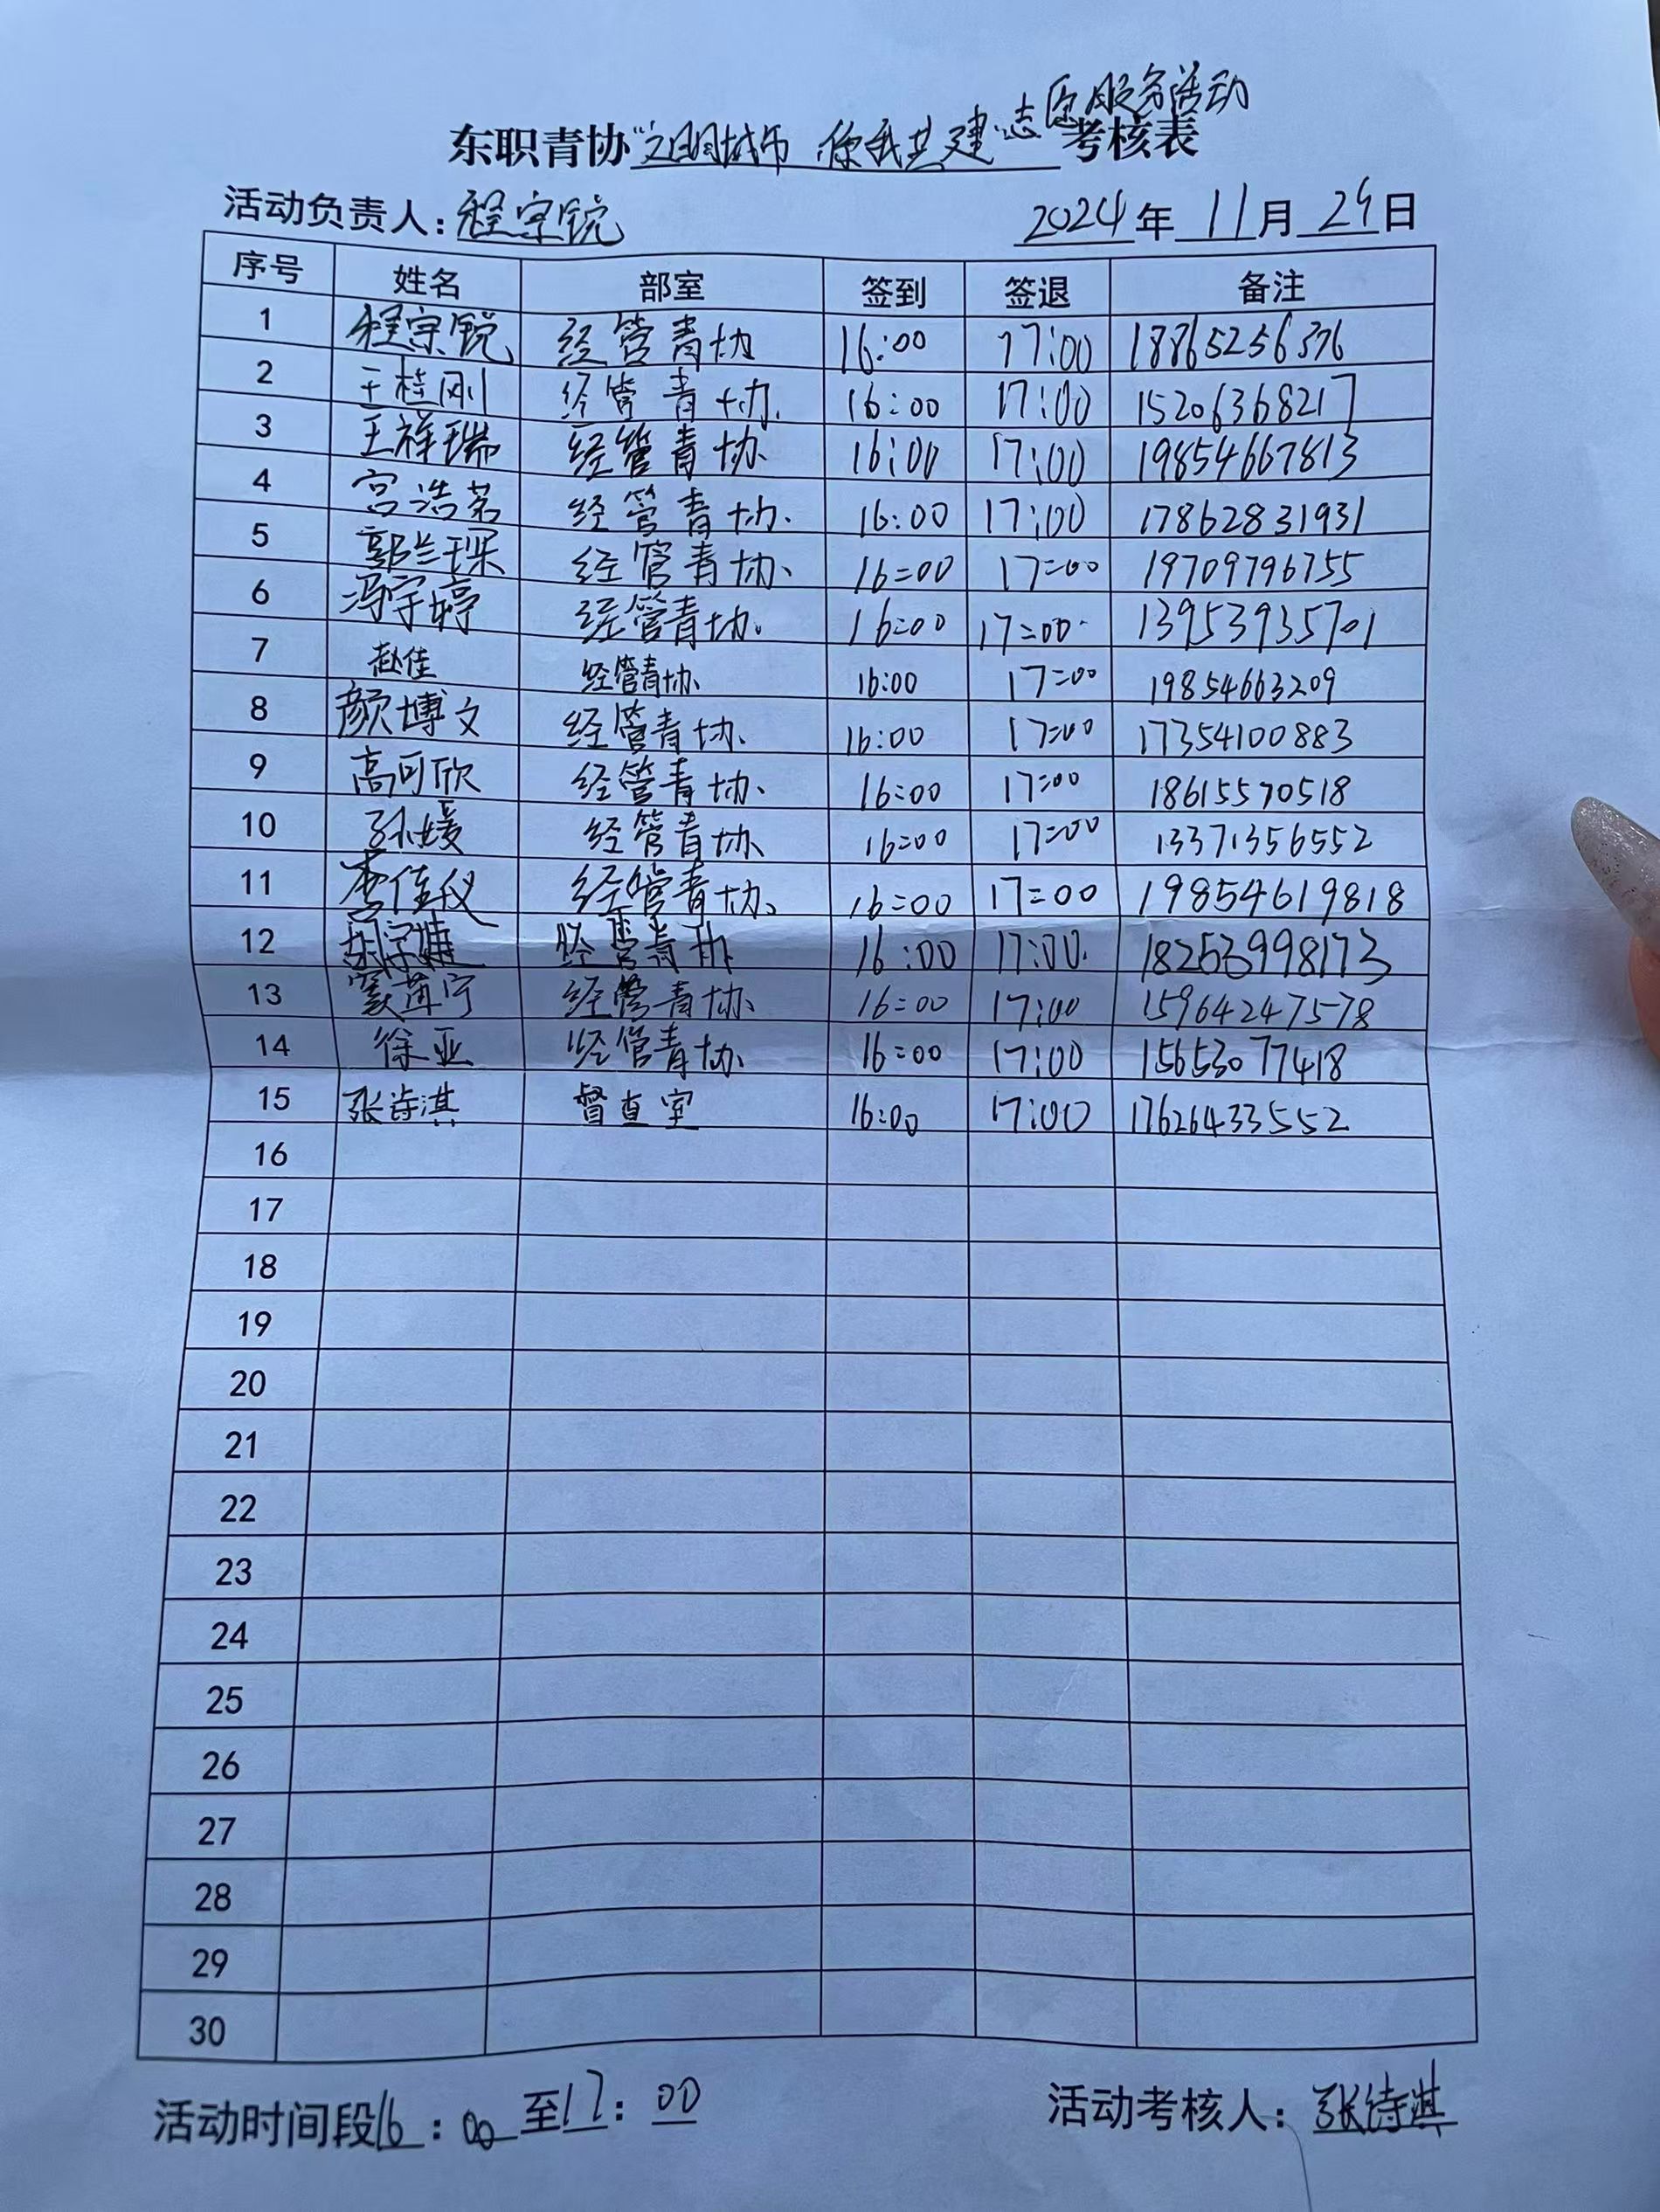 东职青协“文明城市 你我共建”志愿服务活动考核表
活动负责人：程宗锐 2024年11月29日
序号 姓名 部室 签到 签退 备注
1 程宗锐 经管青协 16:00 17:00 18865256376
2 王桂刚 经管青协. 16:00 17:00 15206368217
3 王祥瑞 经管青协. 16:00 17:00 19854667813
4 宫浩茗 经管青协. 16:00 17:00 17862831931
5 郭兰琛 经管青协. 16:00 17:00 19709796755
6 冯宇婷 经管青协. 16:00 17:00 13953935701
7 赵佳 经管青协. 16:00 17:00 19854663209
8 颜博文 经管青协. 16:00 17:00 17354100883
9 高可欣 经管青协. 16:00 17:00 18615570518
10 孙媛 经管青协. 16:00 17:00 13371356552
11 李佳仪 经管青协. 16:00 17:00 19854619818
12 经管青协 16:00 17:00. 18253998173
13 经管青协. 16:00 17:00 15964247578
14 徐亚 经管青协. 16:00 17:00 15653077418
15 张诗淇 督查室 16:00 17:00 17626433552
16
17
18
19
20
21
22
23
24
25
26
27
28
29
30
活动时间段16：00至17：00 活动考核人：张诗淇